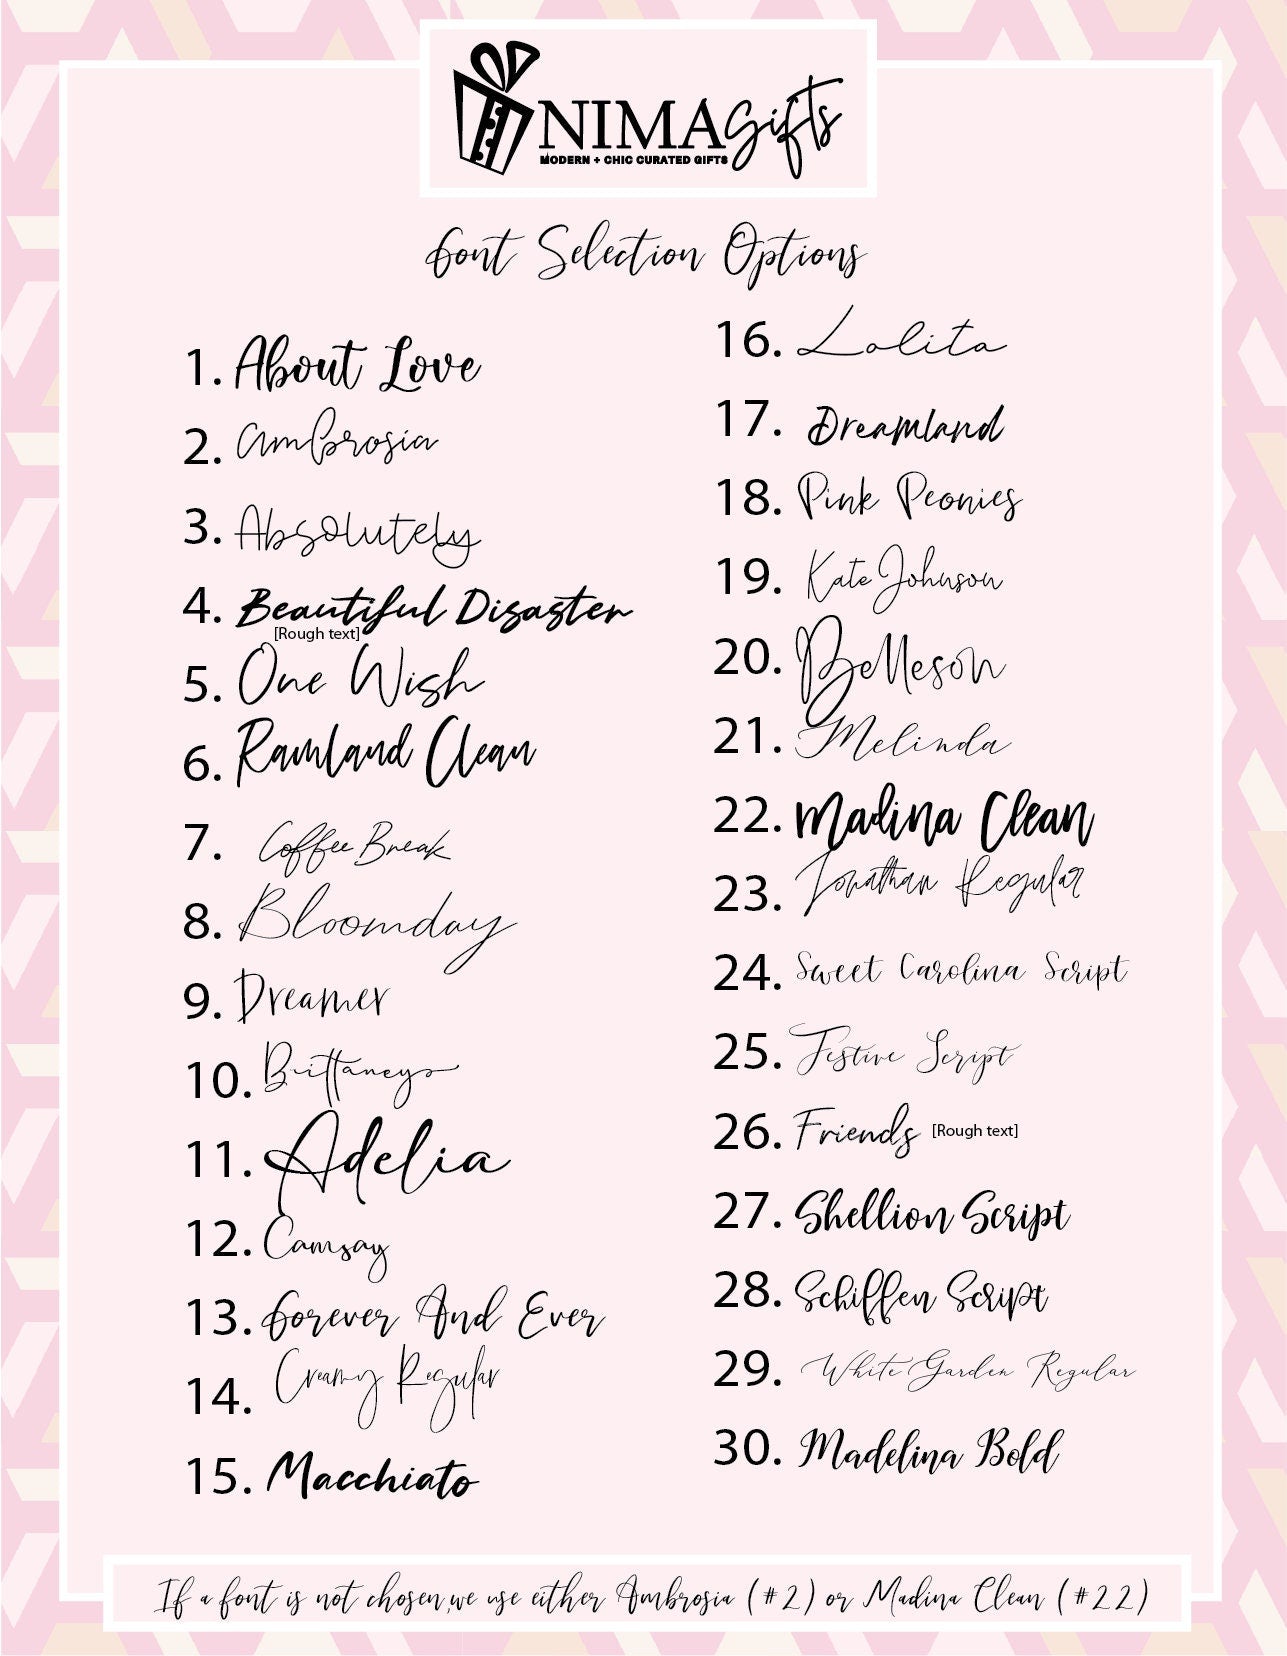 NIMAGifts
MODERN + CHIC CURATED GIFTS
Font Selection Options
1. About Love
2. Ambrosia
3. Absolutely
4. Beautiful Disaster
[Rough text]
5. One Wish
6. Ramland Clean
7. Coffee Break
8. Bloomday
9. Dreamer
10. Brittaneys
11. Adelia
12. Camsay
13. Forever And Ever
14. Creamy Regular
15. Macchiato
16. Lolita
17. Dreamland
18. Pink Peonies
19. Kate Johnson
20. Belleson
21. Melinda
22. Madina Clean
23. Jonathan Regular
24. Sweet Carolina Script
25. Festive Script
26. Friends [Rough text]
27. Shellion Script
28. Schiffen Script
29. White Garden Regular
30. Madelina Bold
If a font is not chosen,we use either Ambrosia (#2) or Madina Clean (#22)